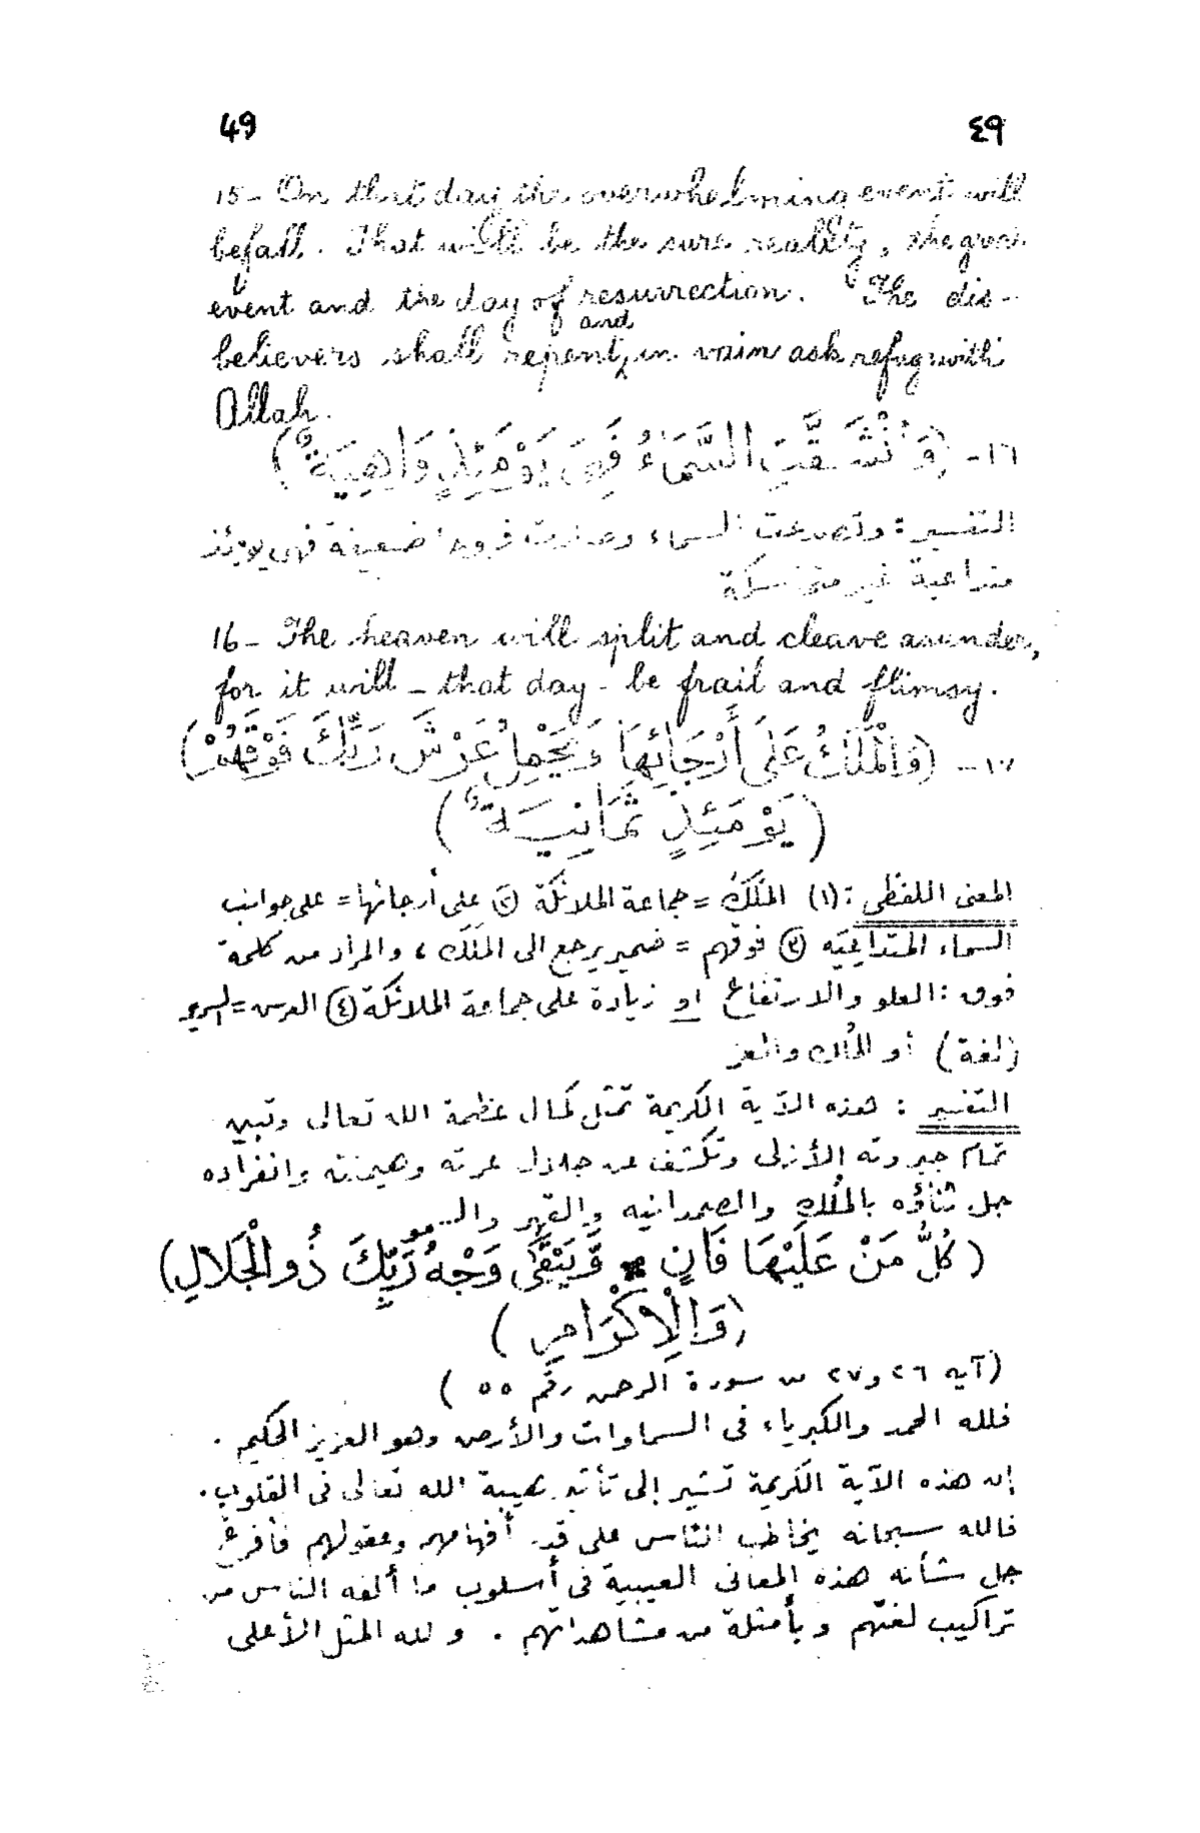 49 ٤٩
15- On that day the overwhelming event will
befall. That will be the sure reality, the great
event and the day of resurrection. The dis-
believers shall repent, and in vain ask refuge with
Allah.
١٦- (وَانْشَقَّتِ السَّمَاءُ فَهِيَ يَوْمَئِذٍ وَاهِيَةٌ)
التفسير: وتصدعت السماء وصارت ضعيفة فهي يومئذ
متداعية غير متماسكة
16- The heaven will split and cleave asunder,
for it will - that day - be frail and flimsy.
١٧- (وَالْمَلَكُ عَلَى أَرْجَائِهَا وَيَحْمِلُ عَرْشَ رَبِّكَ فَوْقَهُمْ)
(يَوْمَئِذٍ ثَمَانِيَةٌ)
المعنى اللفظى: (١) المَلَكُ = جماعة الملائكة (٢) على أرجائها = على جوانب
السماء المتداعيه (٣) فوقهم = ضمير يرجع الى المَلَك، والمراد من كلمة
فوق: العلو والارتفاع او زيادة على جماعة الملائكة (٤) العرش = السرير
(لغة) أو المُلك والعز
التفسير: هذه الآية الكريمة تمثل كمال عظمة الله تعالى وتبين
تمام جبروته الأزلى وتكشف عن جلال عزته وهيمنته وانفراده
جل ثناؤه بالمُلك والصمدانيه والقهر والسمو
(كُلُّ مَنْ عَلَيْهَا فَانٍ * وَيَبْقَى وَجْهُ رَبِّكَ ذُو الْجَلَالِ)
(وَالْإِكْرَامِ)
(آيه ٢٦ و٢٧ من سورة الرحمن رقم ٥٥)
فلله الحمد والكبرياء فى السماوات والأرض وهو العزيز الحكيم.
إن هذه الآية الكريمة تشير إلى تأثير هيبة الله تعالى فى القلوب.
فالله سبحانه يخاطب الناس على قدر أفهامهم وعقولهم فأفرغ
جل شأنه هذه المعانى الغيبية فى أسلوب ما ألفه الناس من
تراكيب لغتهم وبأمثلة من مشاهداتهم. ولله المثل الأعلى